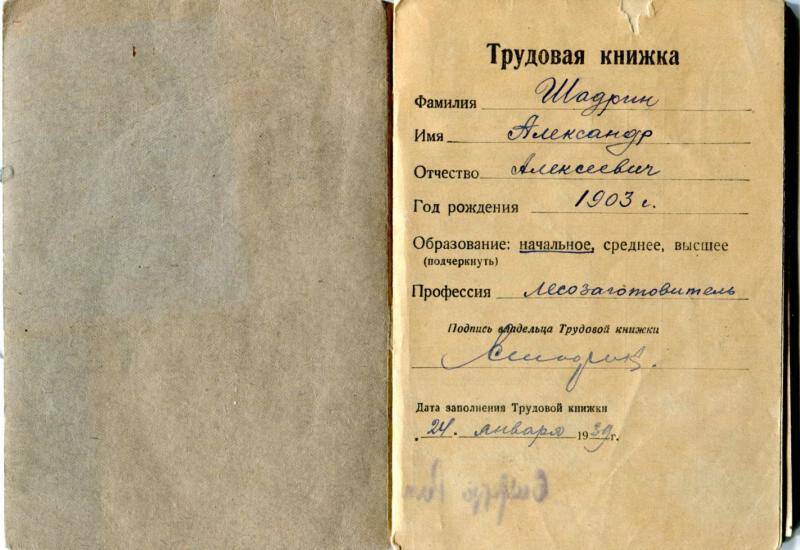 Трудовая книжка
Фамилия Шадрин
Имя Александр
Отчество Алексеевич
Год рождения 1903 г.
Образование: начальное, среднее, высшее
(подчеркнуть)
Профессия лесозаготовитель
Подпись владельца Трудовой книжки
Дата заполнения Трудовой книжки
24. января 1939 г.